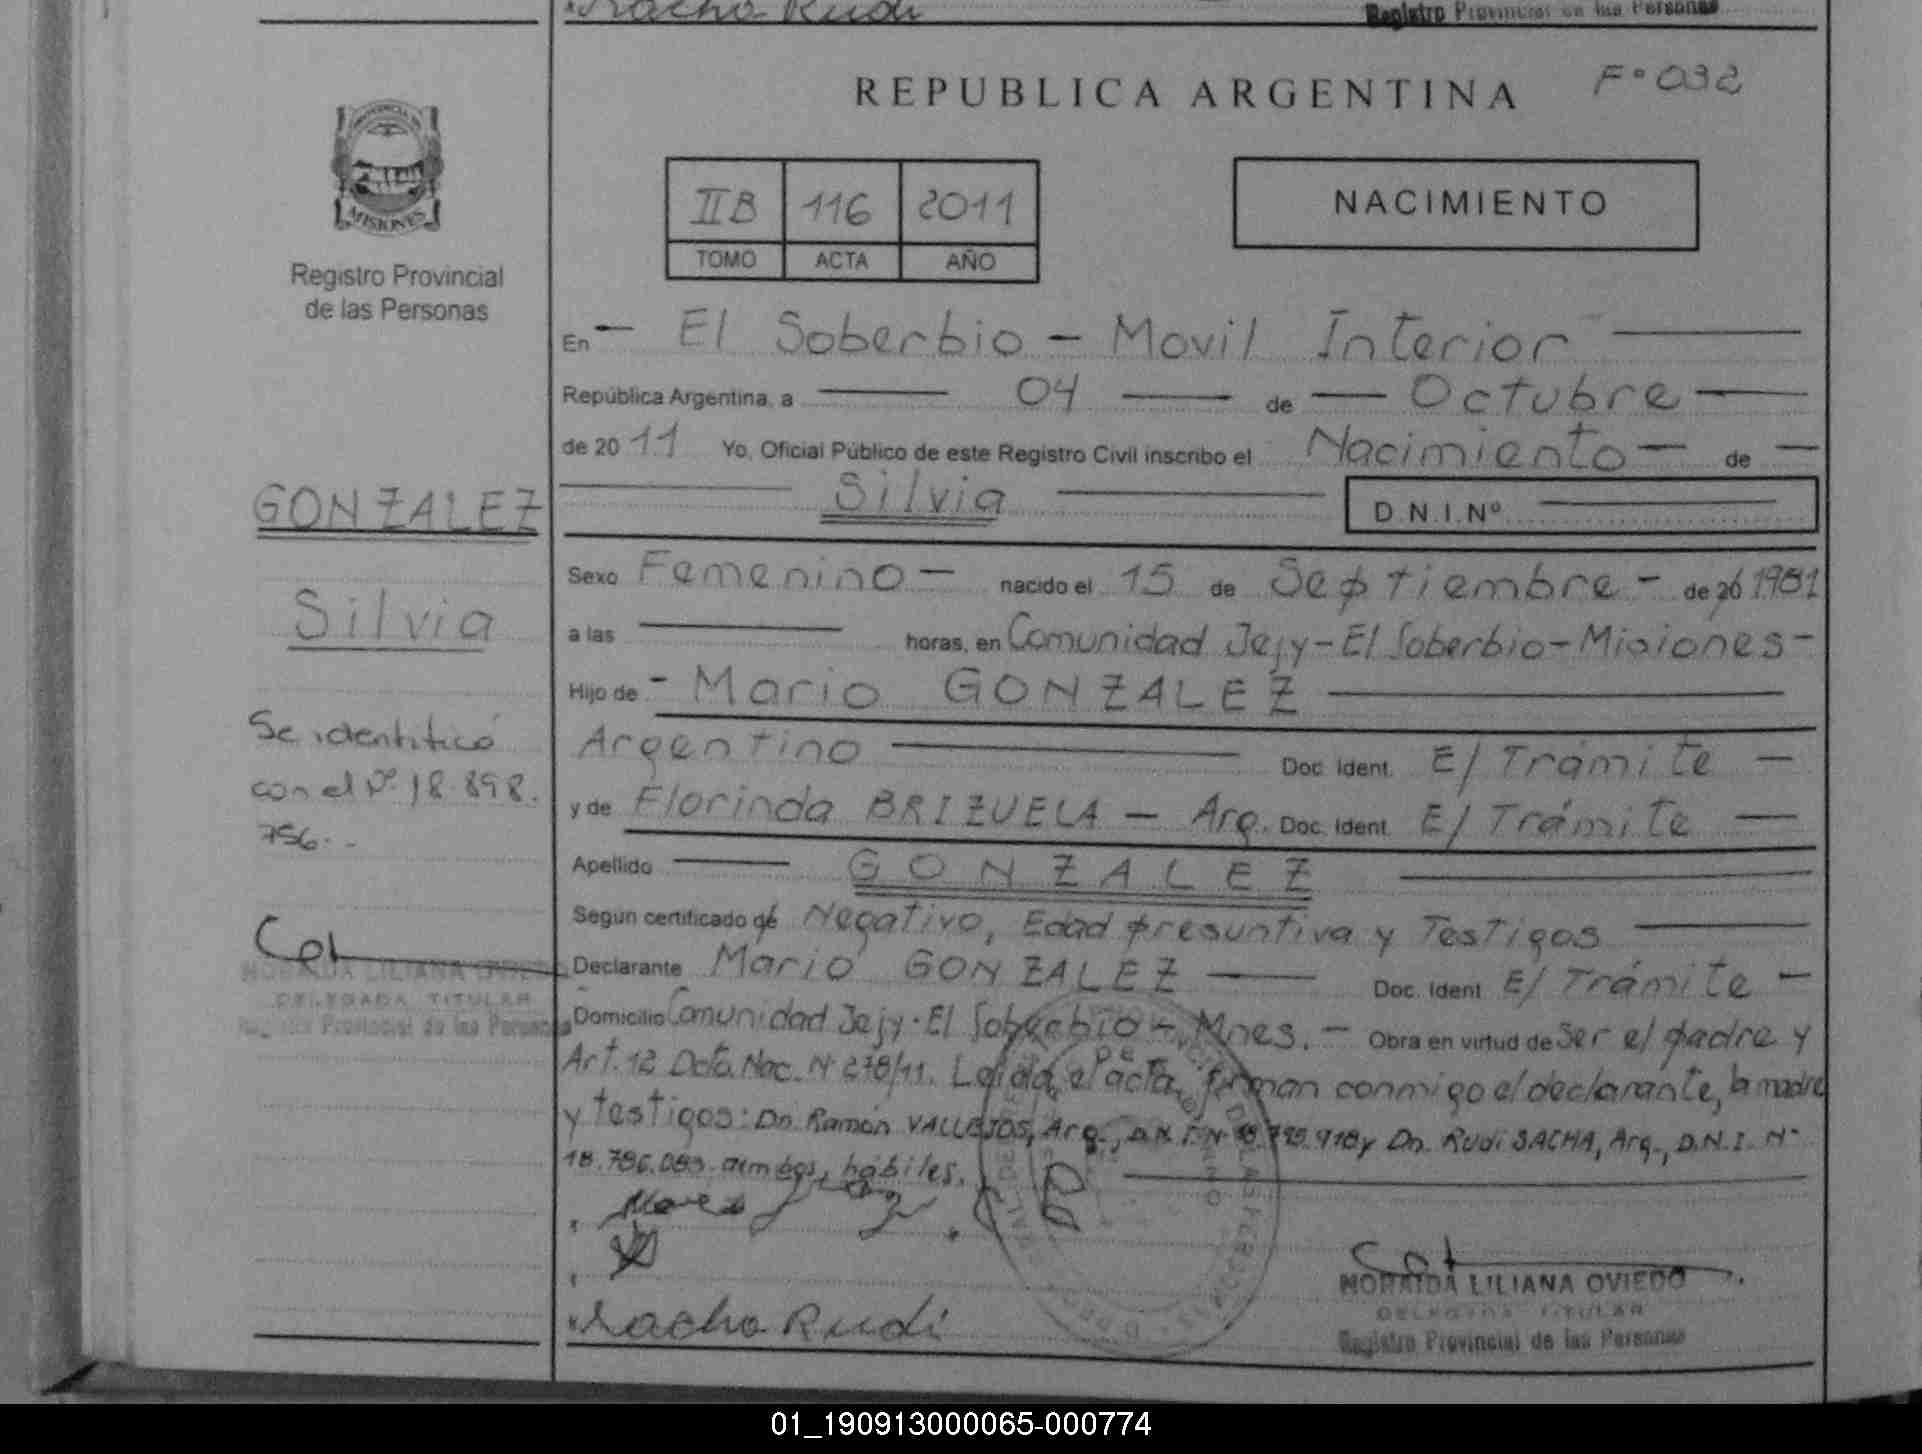 Registro Provincial de las Personas
REPUBLICA ARGENTINA
Fº 032
IIB 116 2011
TOMO ACTA AÑO
NACIMIENTO
MISIONES
Registro Provincial
de las Personas
GONZALEZ
Silvia
Se identificó
con el Nº 18.898.
756.-
NORAIDA LILIANA OVIEDO
DELEGADA TITULAR
Registro Provincial de las Personas
En - El Soberbio - Movil Interior
República Argentina, a 04 de Octubre
de 2011 Yo, Oficial Público de este Registro Civil inscribo el Nacimiento - de -
Silvia D.N.I.Nº
Sexo Femenino - nacido el 15 de Septiembre - de 20 1981
a las horas, en Comunidad Jejy-El Soberbio-Misiones-
Hijo de - Mario GONZALEZ
Argentino Doc. Ident. E/ Trámite -
y de Florinda BRIZUELA - Arg. Doc. Ident. E/ Trámite -
Apellido GONZALEZ
Según certificado de Negativo, Edad presuntiva y Testigos
Declarante Mario GONZALEZ Doc. Ident E/ Trámite -
Domicilio Comunidad Jejy-El Soberbio - Mnes. - Obra en virtud de Ser el padre y
Art. 12 Dcto. Nac. Nº 278/11. Leída el acta, firman conmigo el declarante, la madre
y testigos: Dn. Ramón VALLEJOS, Arg., D.N.I. Nº y Dn. Rudi SACHA, Arg., D.N.I. Nº
18.786.083. ambos, hábiles.
Sacha Rudi
NORAIDA LILIANA OVIEDO
DELEGADA TITULAR
Registro Provincial de las Personas
01_190913000065-000774